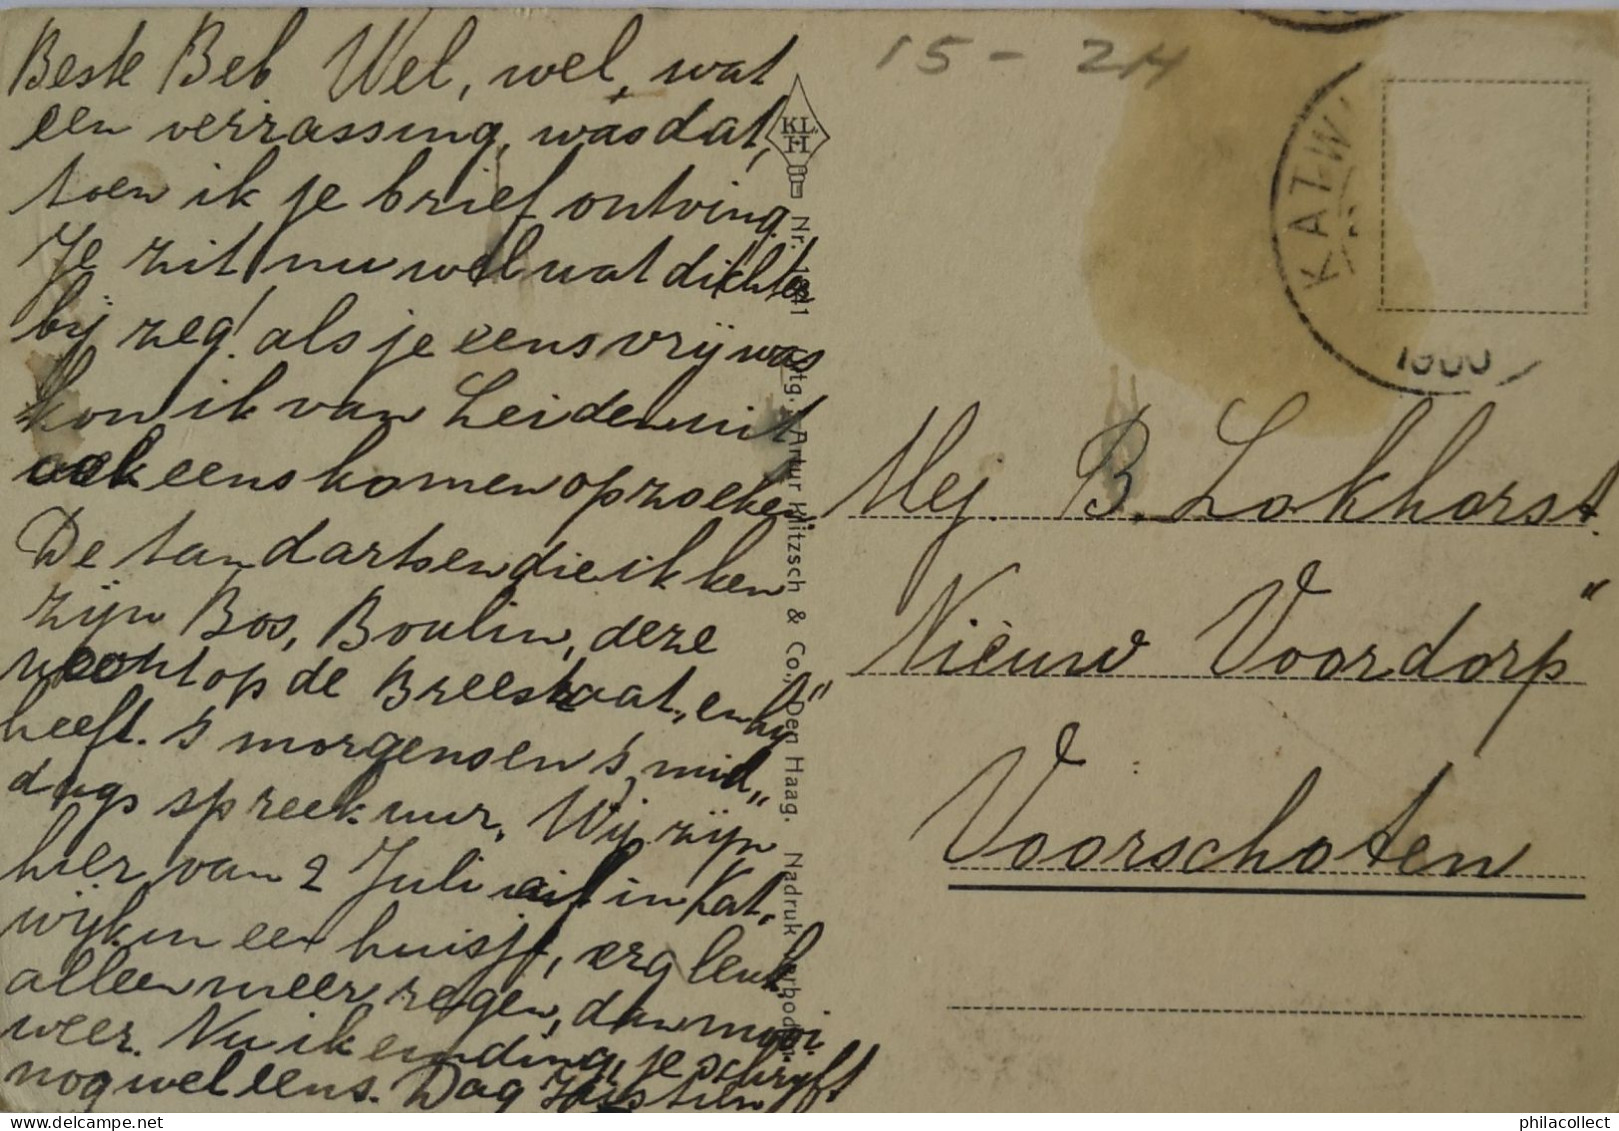 Beste Beb Wel, wel, wat
een verrassing, was dat,
toen ik je brief ontving.
Je zit nu wel wat dichter
bij zeg! als je eens vrij was
kon ik van Leiden uit
ook eens komen opzoeken
De tandartsen die ik ken
zijn Bos, Boulin, deze
woont op de Breestraat, en hij
heeft 's morgens en 's mid„
dags spreekuur. Wij zijn
hier van 2 Juli af in Kat„
wijk in een huisje, erg leuk,
alleen meer regen, dan mooi
weer. Nu ik eindig, je schrijft
nog wel eens. Dag
KL.H
Nr.
Uitg. Artur Klitzsch & Co., Den Haag. Nadruk verboden
15 - 24
KATW
Mej. B. Lokhorst.
„Nieuw Voordorp"
Voorschoten
philacollect